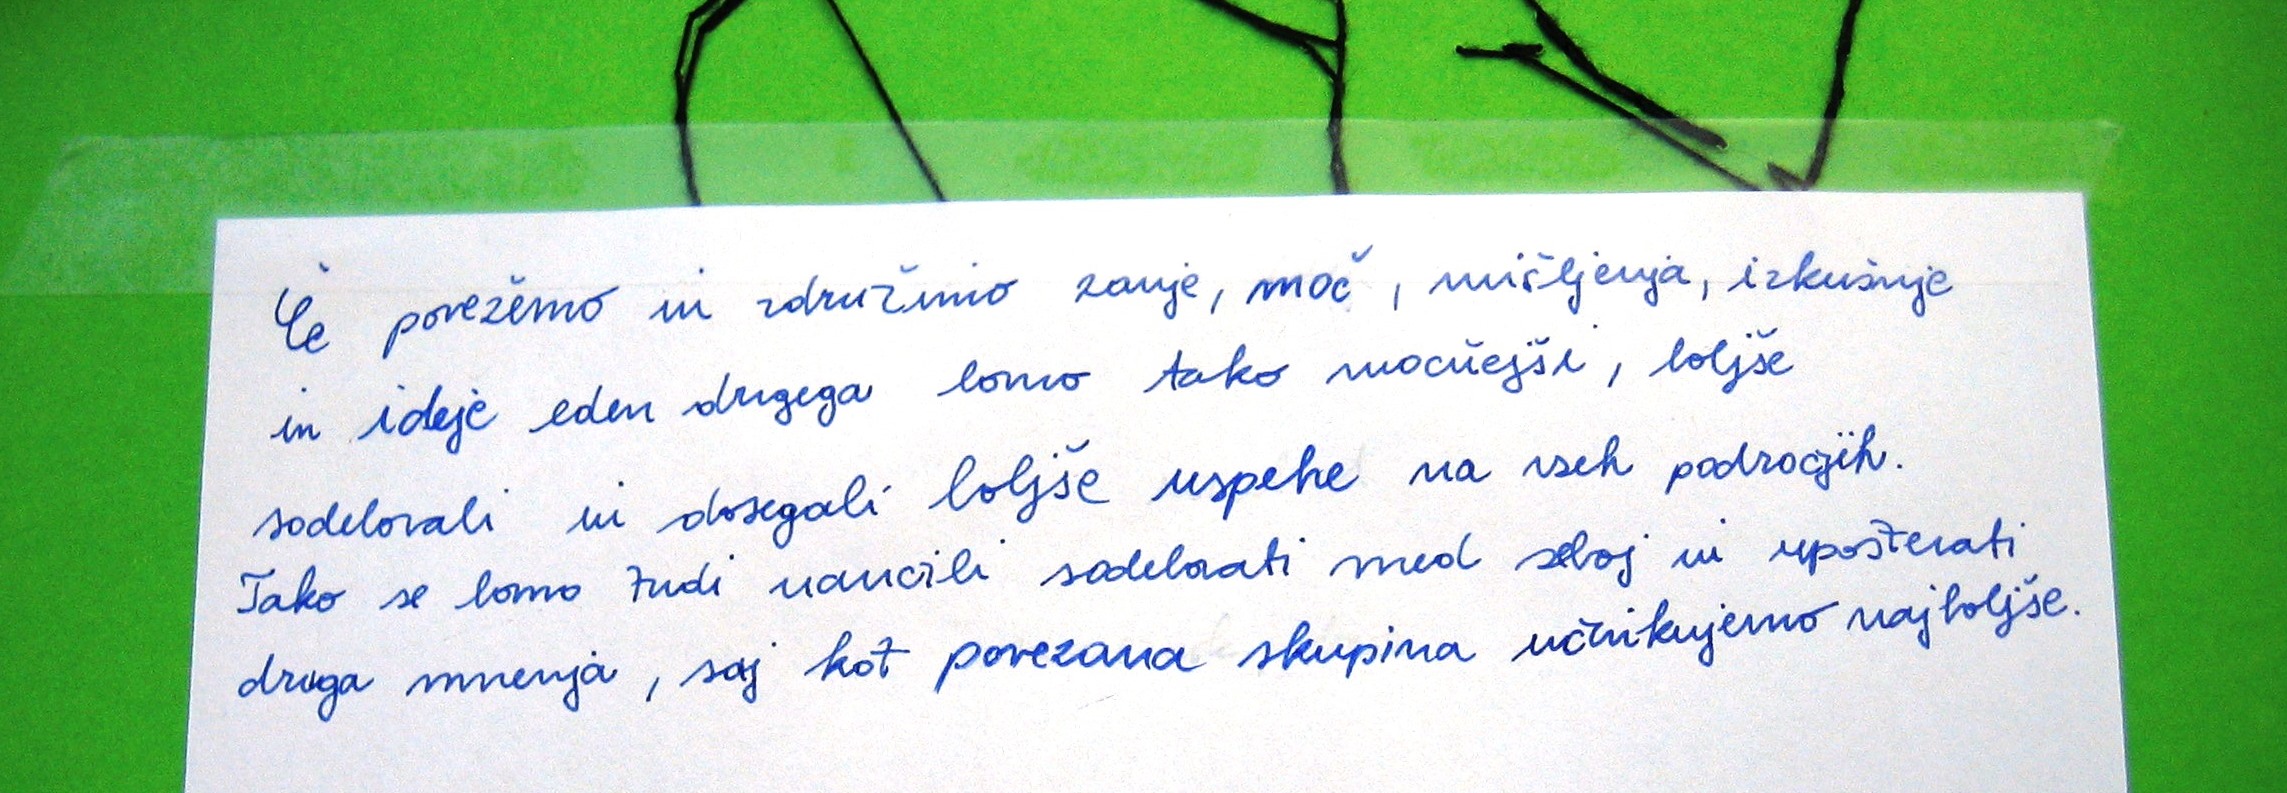 Če povežemo in združimo zanje, moč, mišljenja, izkušnje
in ideje eden drugega bomo tako močnejši, boljše
sodelovali in dosegali boljše uspehe na vseh področjih.
Tako se bomo tudi naučili sodelovati med seboj in upoštevati
druga mnenja, saj kot povezana skupina učinkujemo najboljše.